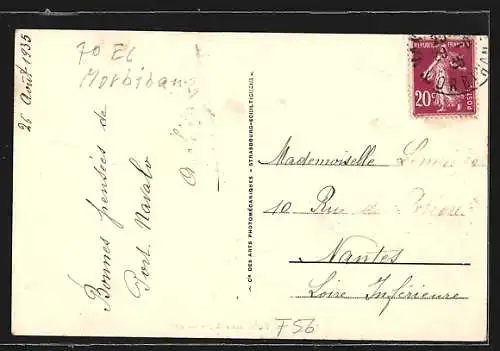 26 Août 1935
70 EC
Morbihan
Bonnes pensées de
Port Navalo
Cie DES ARTS PHOTOMÉCANIQUES - STRASBOURG-SCHILTIGHEIM
REPUBLIQUE FRANÇAISE
20
POSTES
Mademoiselle
10 Rue de
Nantes
Loire Inférieure
F56